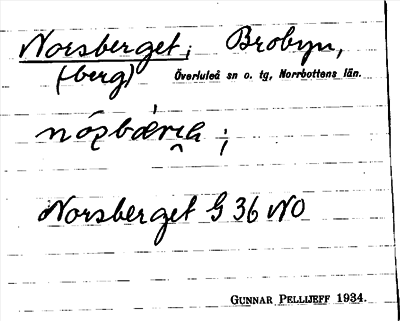 Norsberget; Brobyn,
(berg) Överluleå sn o. tg, Norrbottens län.
Norsberget G 36 NO
GUNNAR PELLIJEFF 1934.